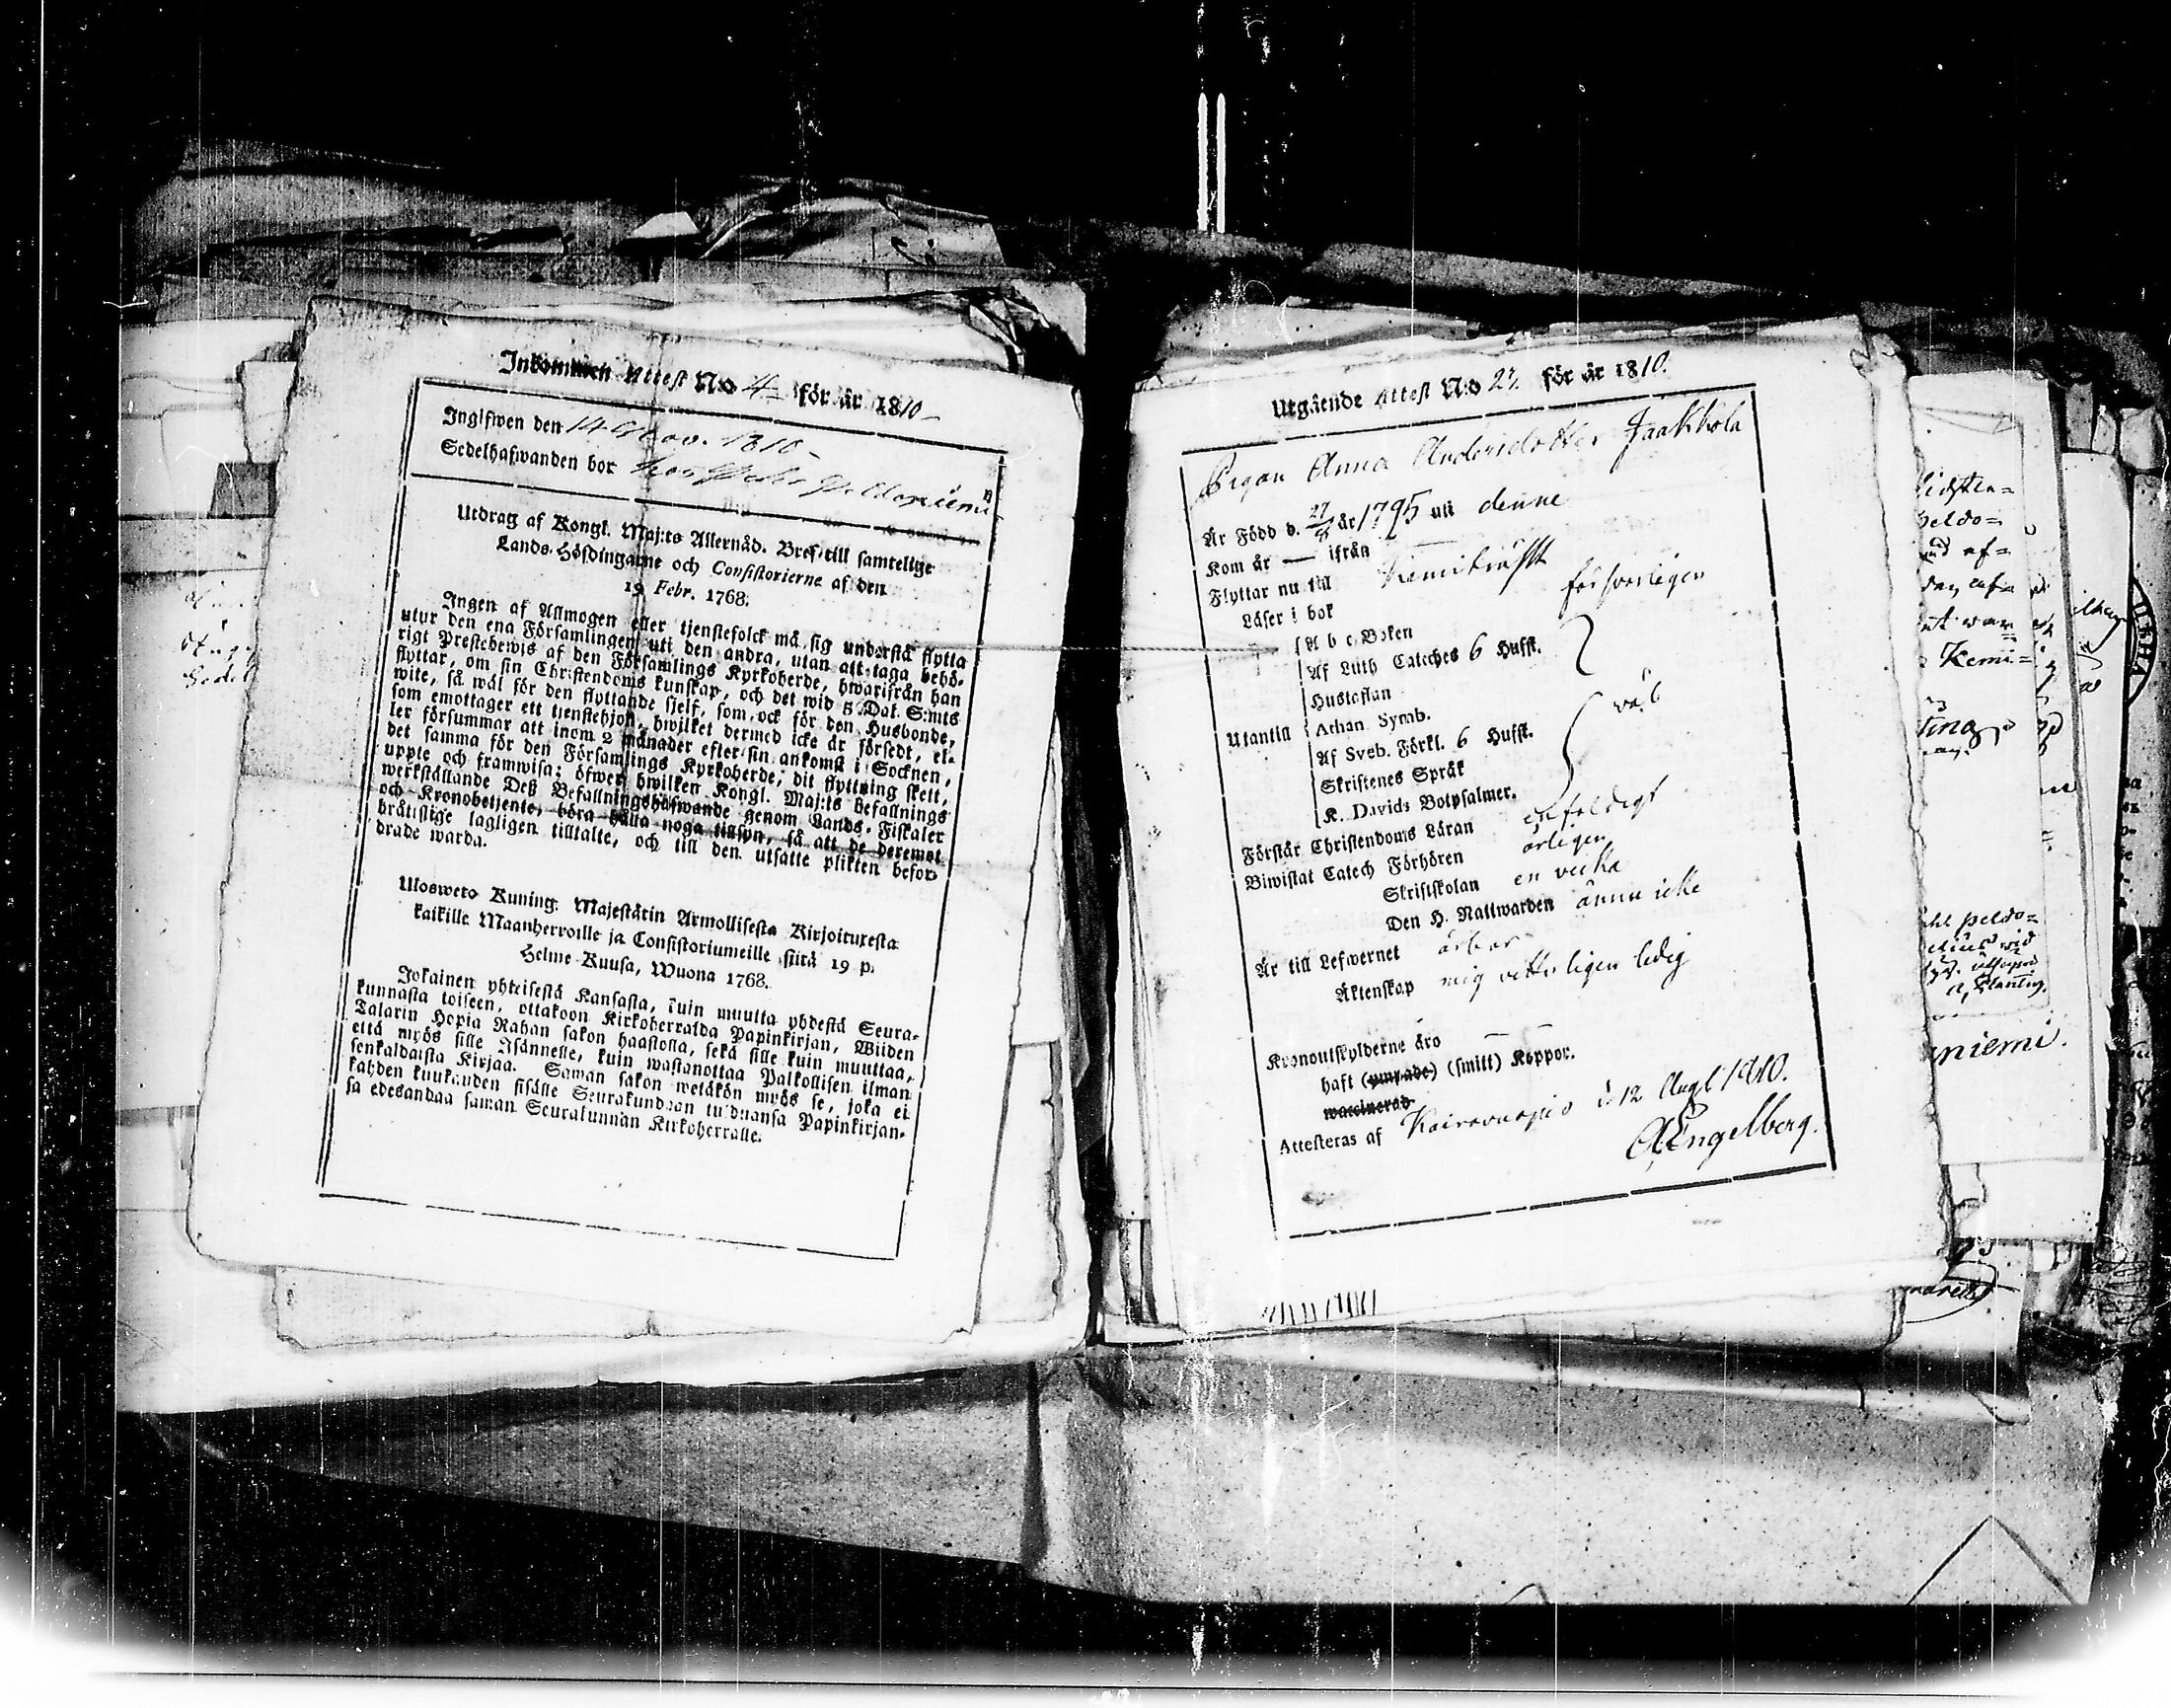 Inkommen Attest N:o 4 för år 1810
Ingifwen den 14 Nov. 1810
Sedelhafwanden bor hos Peldoniemi
Utdrag af Kongl. Maj:ts Allernåd. Bref till samtellige
Lands-Höfdingarne och Consistorierne af den
19 Febr. 1768.
Ingen af Allmogen eller tjenstefolck må sig understå flytta
utur den ena Församlingen uti den andra, utan att taga behö-
rigt Prestebewis af den Församlings Kyrkoherde, hwarifrån han
flyttar, om sin Christendoms kunskap, och det wid 5 Dal. S:mts
wite, så wäl för den flyttande sjelf, som ock för den Husbonde,
som emottager ett tjenstehjon, hwilket dermed icke är försedt, el-
ler försummar att inom 2 månader efter sin ankomst i Socknen,
det samma för den Församlings Kyrkoherde, dit flyttning skett,
uppte och framwisa; öfwer hwilken Kongl. Maj:ts Befallnings
werkställande Deß Befallningshafwande genom Lands-Fiskaler
och Kronobetjente, böra hålla noga tillsyn, så att de deremot
bråttslige lagligen tilltalte, och till den utsatte plikten befor-
drade warda.
Ulosweto Kuning. Majestätin Armollisesta Kirjoituxesta
kaikille Maanherroille ja Consistoriumeille siitä 19 p.
Helme-Kuusa, Wuona 1768.
Jokainen yhteisestä Kansasta, kuin muutta yhdestä Seura-
kunnasta toiseen, ottakoon Kirkoherralda Papinkirjan, Wiiden
Talarin Hopia Rahan sakon haastolla, sekä sille kuin muuttaa,
että myös sille Isännelle, kuin wastanottaa Palkollisen ilman
senkaldaista Kirjaa. Saman sakon wetäkön myös se, joka ei
kahden kuukauden sisälle Seurakundaan tulduansa Papinkirjan-
sa edesandaa saman Seurakunnan Kirkoherralle.
Utgående Attest N:o 27. för år 1810.
Pigan Anna Andersdotter Jaakkola
Är Född d. 27/8 år 1795 uti denne
Kom år — ifrån —
Flyttar nu till Kemiträsk
Läser i bok försvarligen
A b c Boken
Af Luth Cateches 6 Hufst.
Hustaflan
Utantill Athan Symb. väl
Af Sveb. Förkl. 6 Hufst.
Skriftenes Språk
K. Davids Botpsalmer.
Förstår Christendoms Läran enfaldigt
Biwistat Catech Förhören årligen
Skriftskolan en vecka
Den H. Nattwarden ännu icke
Är till Lefwernet ärbar
Äktenskap mig vitterligen ledig
Kronoutskylderne äro — —
haft (ympade) (smitt) Koppor.
waccinerad
Attesteras af Kairovuopio d 12 Aug 1810.
Engelberg.
peldo=
Kemi=
niemi.